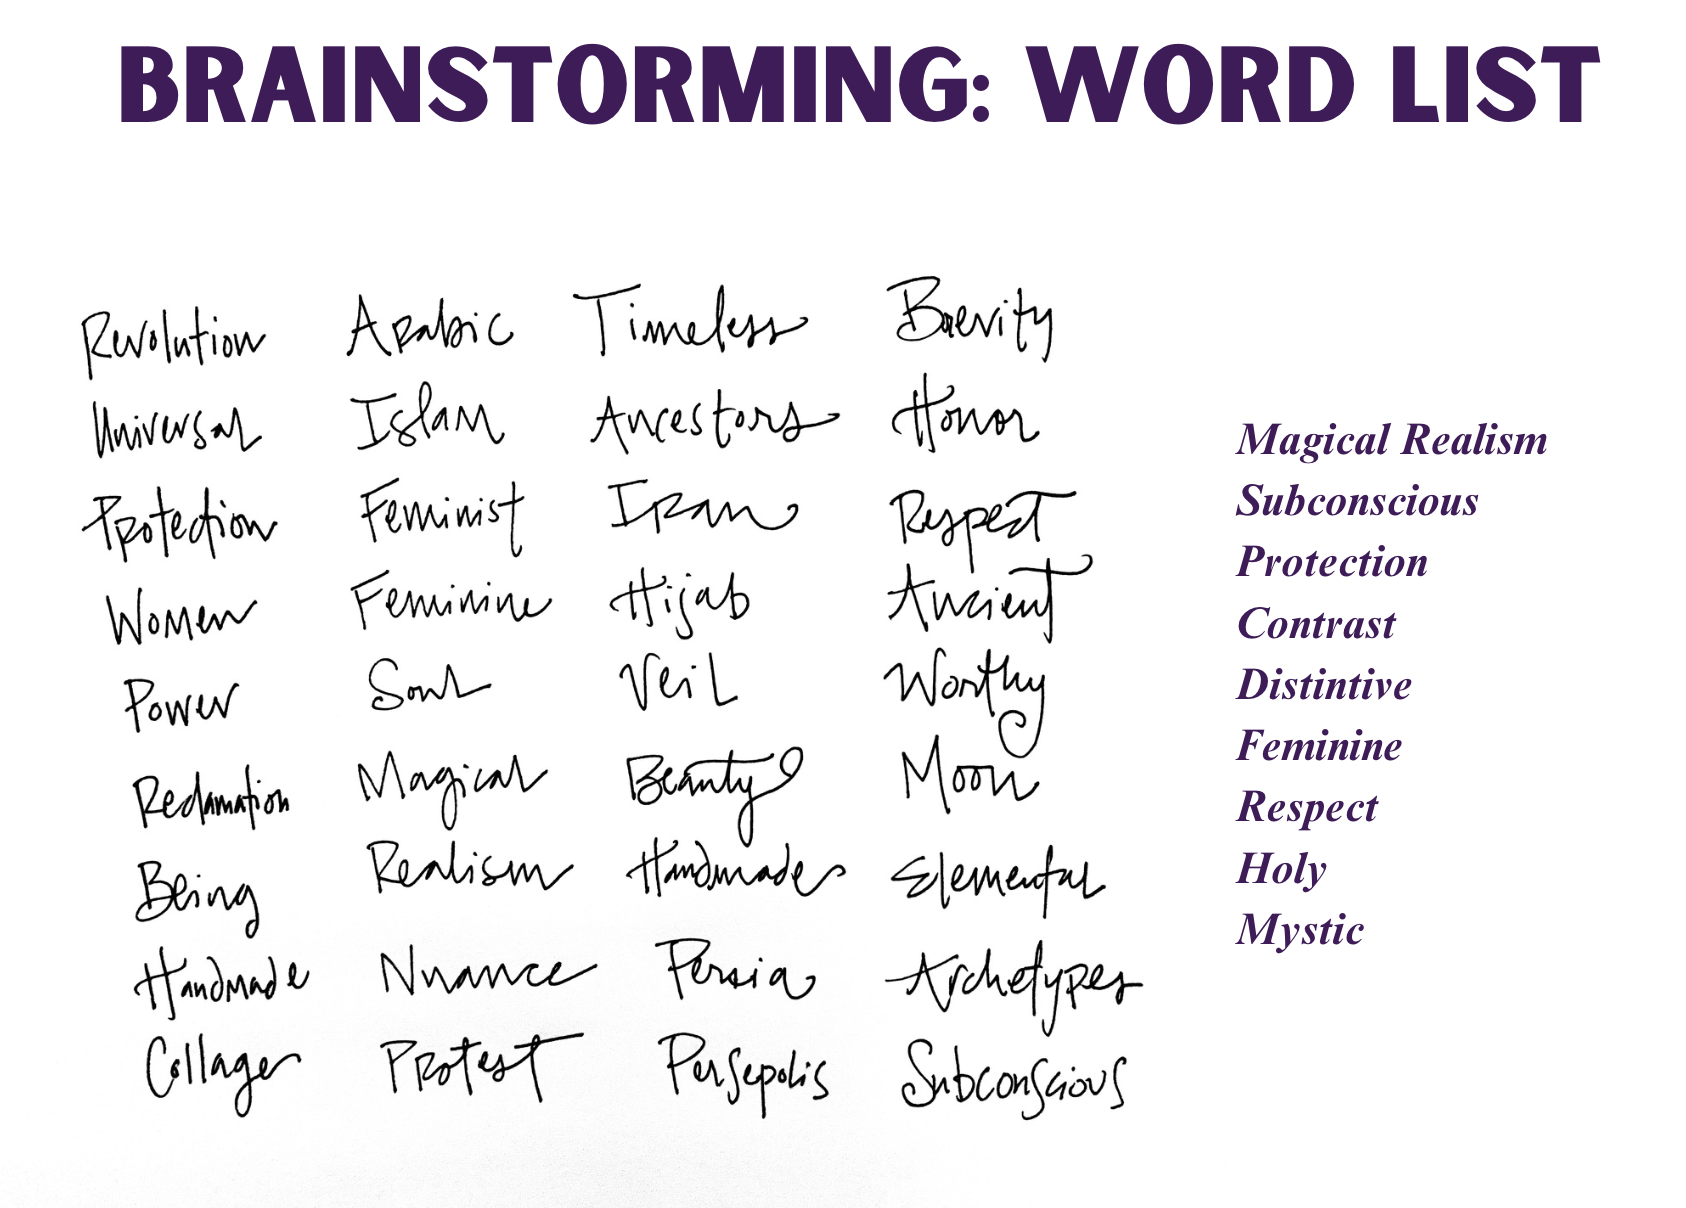 BRAINSTORMING: WORD LIST
Revolution Arabic Timeless Brevity
Universal Islam Ancestors Honor
Protection Feminist Iran Respect
Women Feminine Hijab Ancient
Power Soul Veil Worthy
Reclamation Magical Beauty Moon
Being Realism Handmade Elemental
Handmade Nuance Persia Archetypes
Collage Protest Persepolis Subconscious
Magical Realism
Subconscious
Protection
Contrast
Distintive
Feminine
Respect
Holy
Mystic